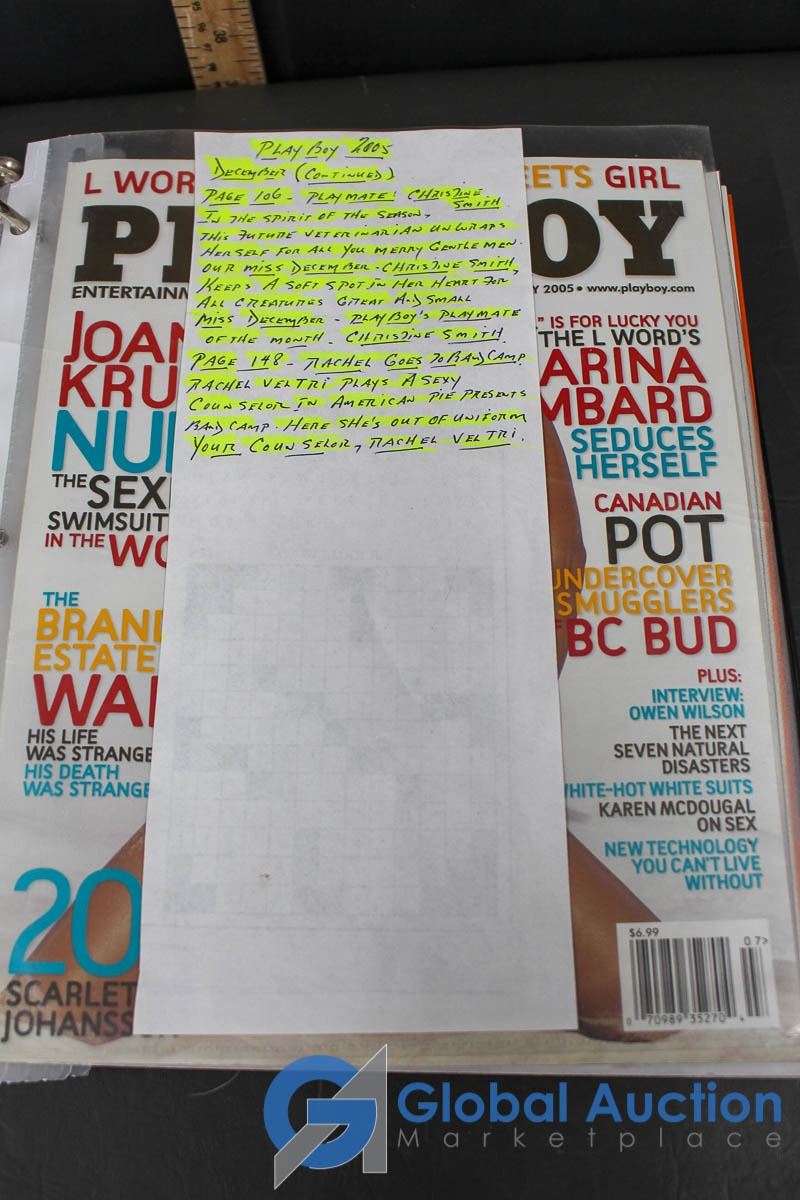 38
PLAYBOY 2005
DECEMBER (CONTINUED)
PAGE 106 - PLAYMATE! CHRISTINE SMITH
IN THE SPIRIT OF THE SEASON,
THIS FUTURE VETERINARIAN UNWRAPS
HERSELF FOR ALL YOU MERRY GENTLEMEN.
OUR MISS DECEMBER - CHRISTINE SMITH,
KEEPS A SOFT SPOT IN HER HEART FOR
ALL CREATURES GREAT AND SMALL
MISS DECEMBER - PLAYBOY'S PLAYMATE
OF THE MONTH - CHRISTINE SMITH.
PAGE 148 - RACHEL GOES TO BAND CAMP
RACHEL VELTRI PLAYS A SEXY
COUNSELOR IN AMERICAN PIE PRESENTS
BAND CAMP. HERE SHE'S OUT OF UNIFORM
YOUR COUNSELOR, RACHEL VELTRI.
L WOR
EETS GIRL
P
OY
ENTERTAINM
Y 2005 • www.playboy.com
JOAN
KRU
NU
THE SEX
SWIMSUIT
IN THE WO
THE
BRAND
ESTATE
WA
HIS LIFE
WAS STRANGE
HIS DEATH
WAS STRANGE
20
SCARLET
JOHANSS
" IS FOR LUCKY YOU
THE L WORD'S
ARINA
MBARD
SEDUCES
HERSELF
CANADIAN
POT
UNDERCOVER
SMUGGLERS
BC BUD
PLUS:
INTERVIEW:
OWEN WILSON
THE NEXT
SEVEN NATURAL
DISASTERS
WHITE-HOT WHITE SUITS
KAREN MCDOUGAL
ON SEX
NEW TECHNOLOGY
YOU CAN'T LIVE
WITHOUT
$6.99
07>
0 70989 35270 4
GA Global Auction
Marketplace